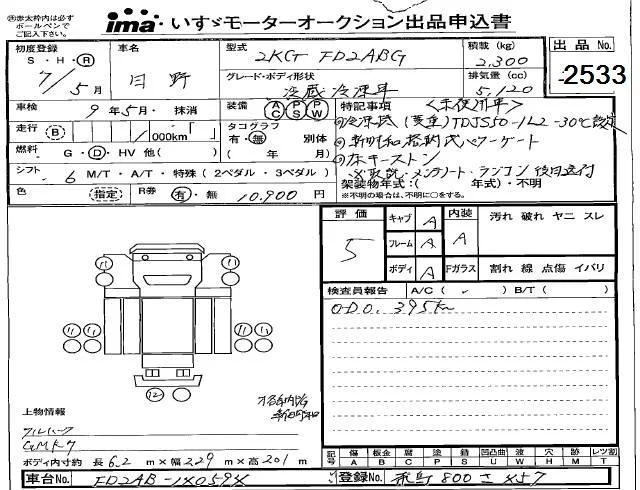 ㊟赤太枠内は必ず
ボールペンで
ご記入下さい。
ima いすゞモーターオークション出品申込書
初度登録
S・H・Ⓡ
7/5月
車名
日野
型式
2KG FD2ABG
グレード・ボディ形状
冷蔵冷凍車
積載 (kg)
2,300
排気量 (cc)
5,120
出品 No.
-2533
車検 9年5月・抹消
装備 AC PS PW
特記事項 <未使用車>
走行 Ⓑ /000km
タコグラフ 別体
有・無
( 年 月)
①冷凍機 (菱重) TDJS50 -30℃設定
②新明和 格納式パワーゲート
③床キーストン
燃料 G・Ⓓ・HV 他( )
シフト 6 M/T・A/T・特殊 (2ペダル・3ペダル)
※取説・メンテノート・ラジコン 後日送付
架装物年式:( 年式)・不明
※不明の場合は、不明に○をする。
色 (指定)
R券 有・無 10,900円
評価
5
キャブ A
フレーム A
ボディ A
内装
A
Fガラス
汚れ 破れ ヤニ スレ
割れ 線 点傷 イバリ
検査員報告 A/C( ✓ ) B/T( )
O.D.O. 395km
11
11
11 11
11 11
12
上物情報
GMK7
ボディ内寸約 長 6.2 m×幅 2.29 m×高 2.01 m
記号 傷 板金 腐 塗 錆 凹凸曲 波 穴 跡 レツ割
A B C P S U W H M T
車台No. FD2AB-
登録No. 800 457